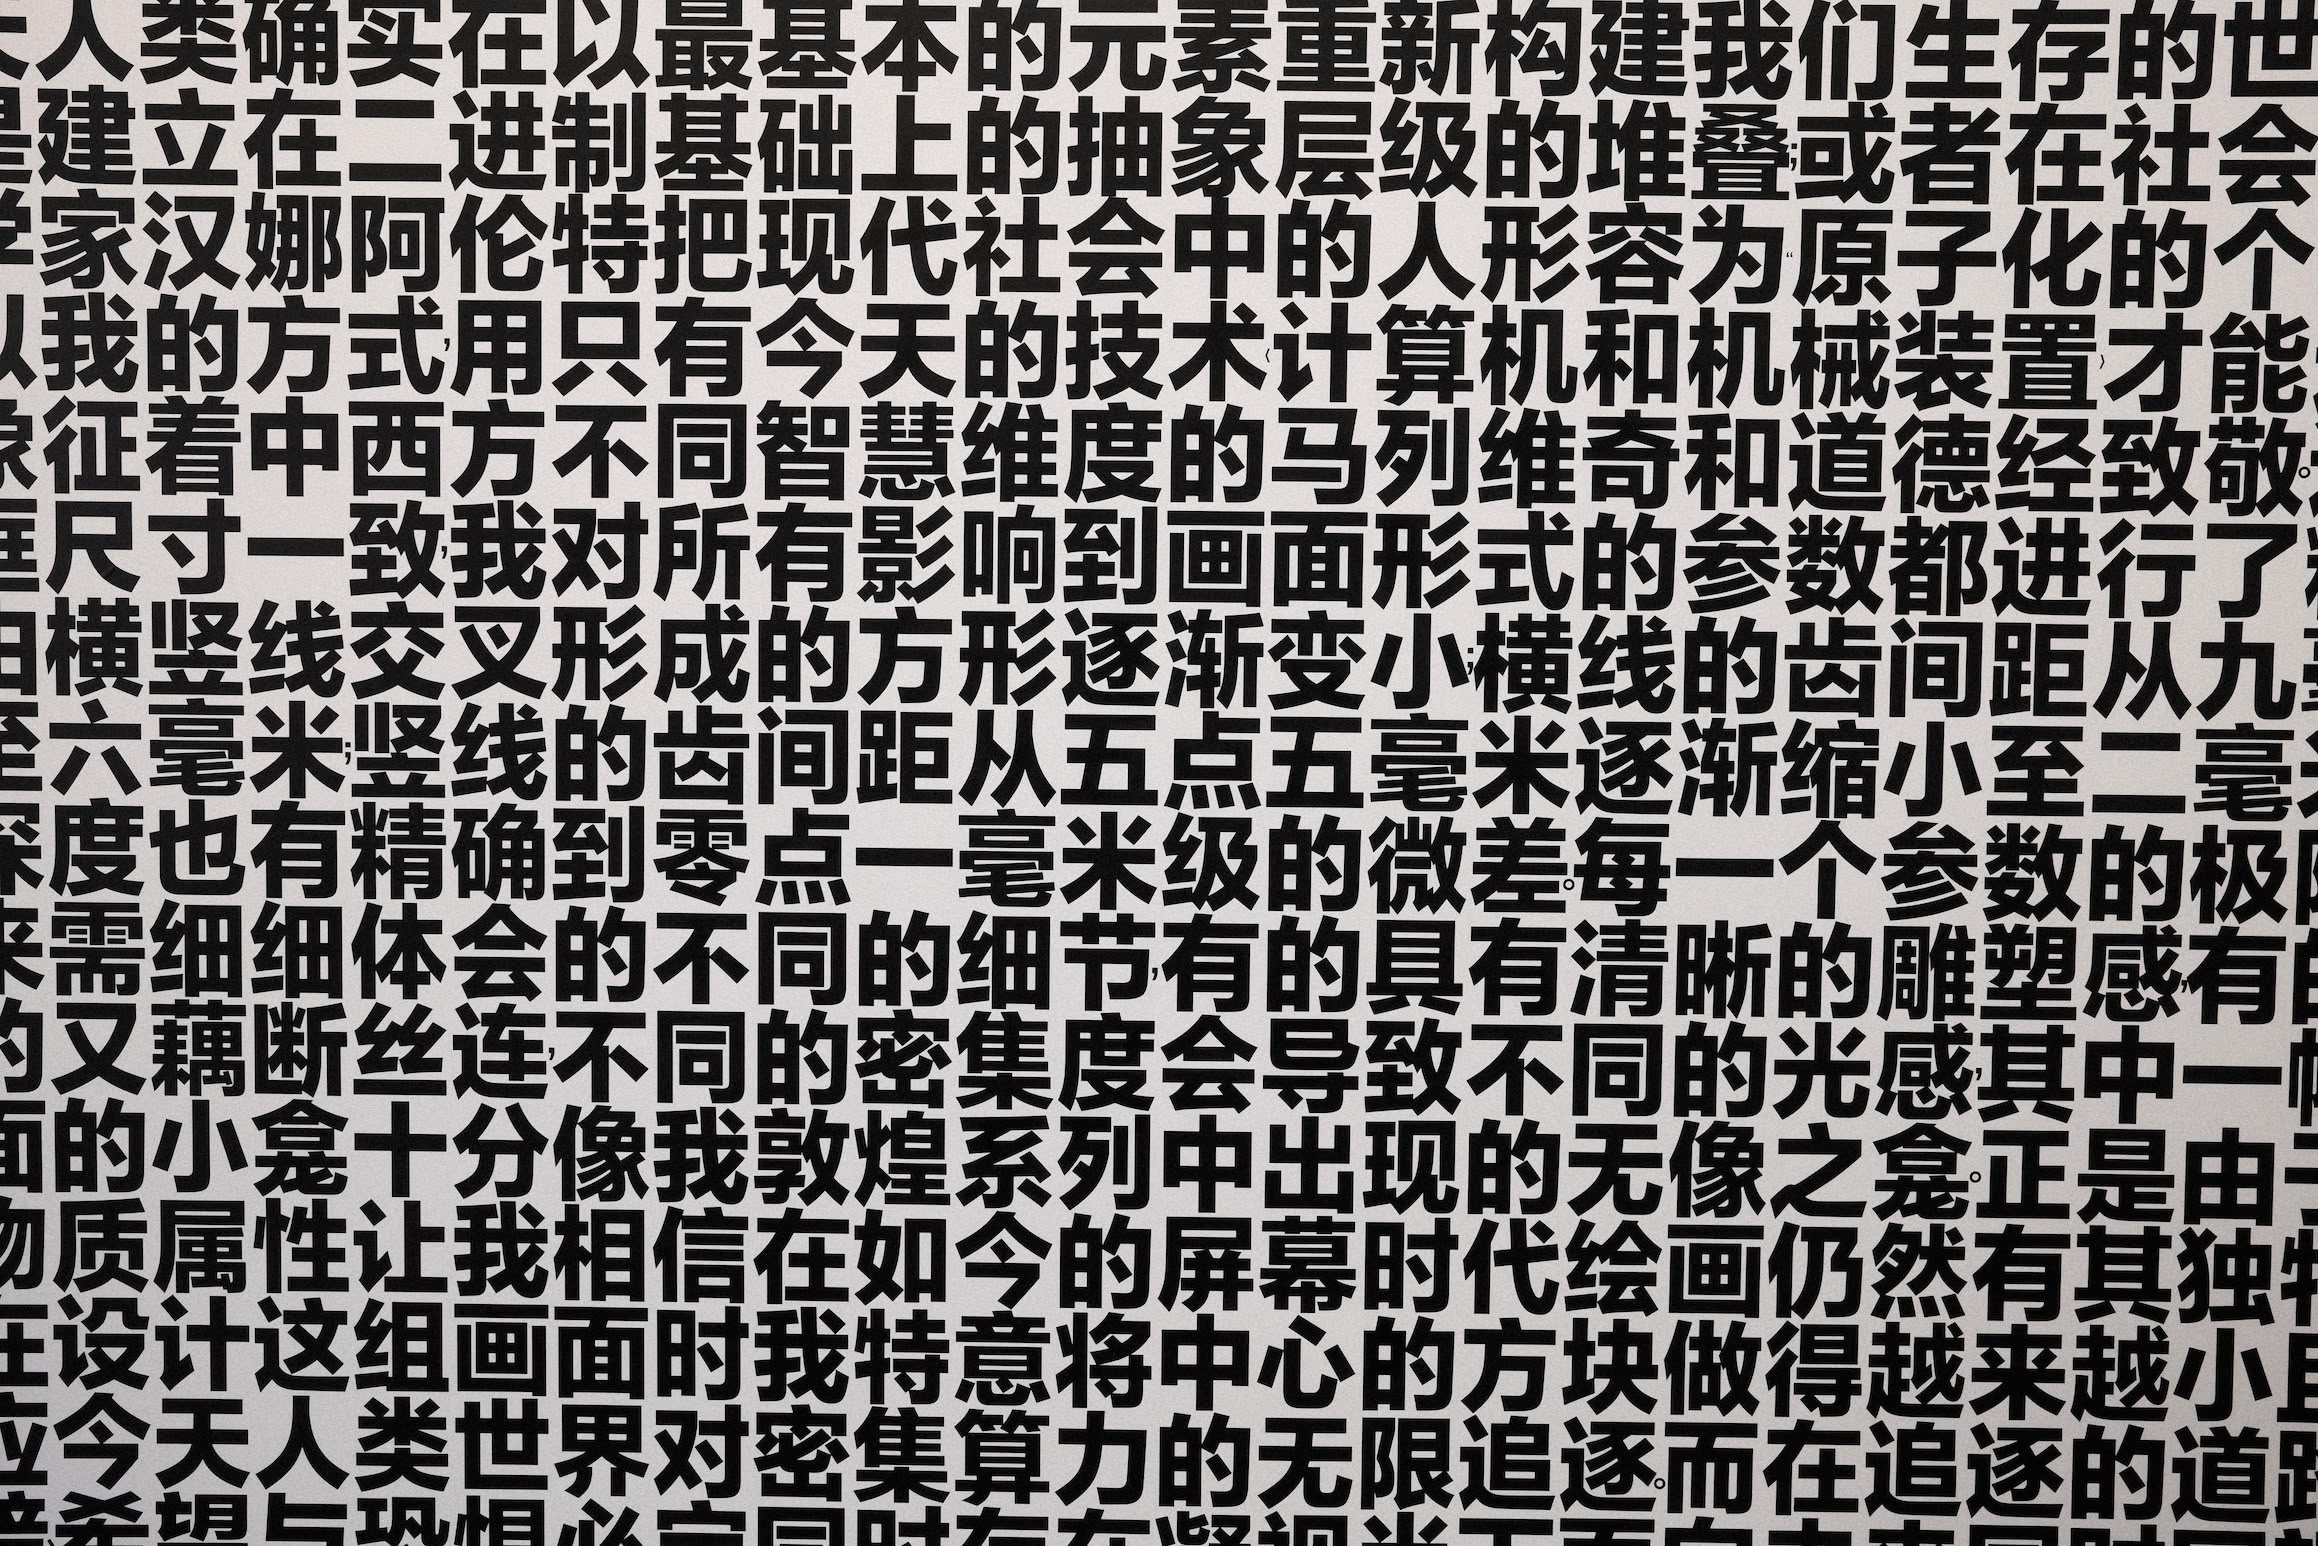 人类确实在以最基本的元素重新构建我们生存的世
建立在二进制基础上的抽象层级的堆叠;或者在社会
家汉娜阿伦特把现代社会中的人形容为“原子化的个
我的方式,用只有今天的技术(计算机和机械装置)才能
征着中西方不同智慧维度的马列维奇和道德经致敬。
尺寸一致,我对所有影响到画面形式的参数都进行了
横竖线交叉形成的方形逐渐变小;横线的齿间距从九
六毫米;竖线的齿间距从五点五毫米逐渐缩小至二毫
度也有精确到零点一毫米级的微差。每一个参数的极
需细细体会的不同的细节,有的具有清晰的雕塑感,有
又藕断丝连,不同的密集度会导致不同的光感,其中一
的小龛十分像我敦煌系列中出现的无像之龛。正是由
质属性让我相信在如今的屏幕时代绘画仍然有其独
设计这组画面时我特意将中心的方块做得越来越小
今天人类世界对密集算力的无限追逐。而在追逐的道
希望人与恐惧必